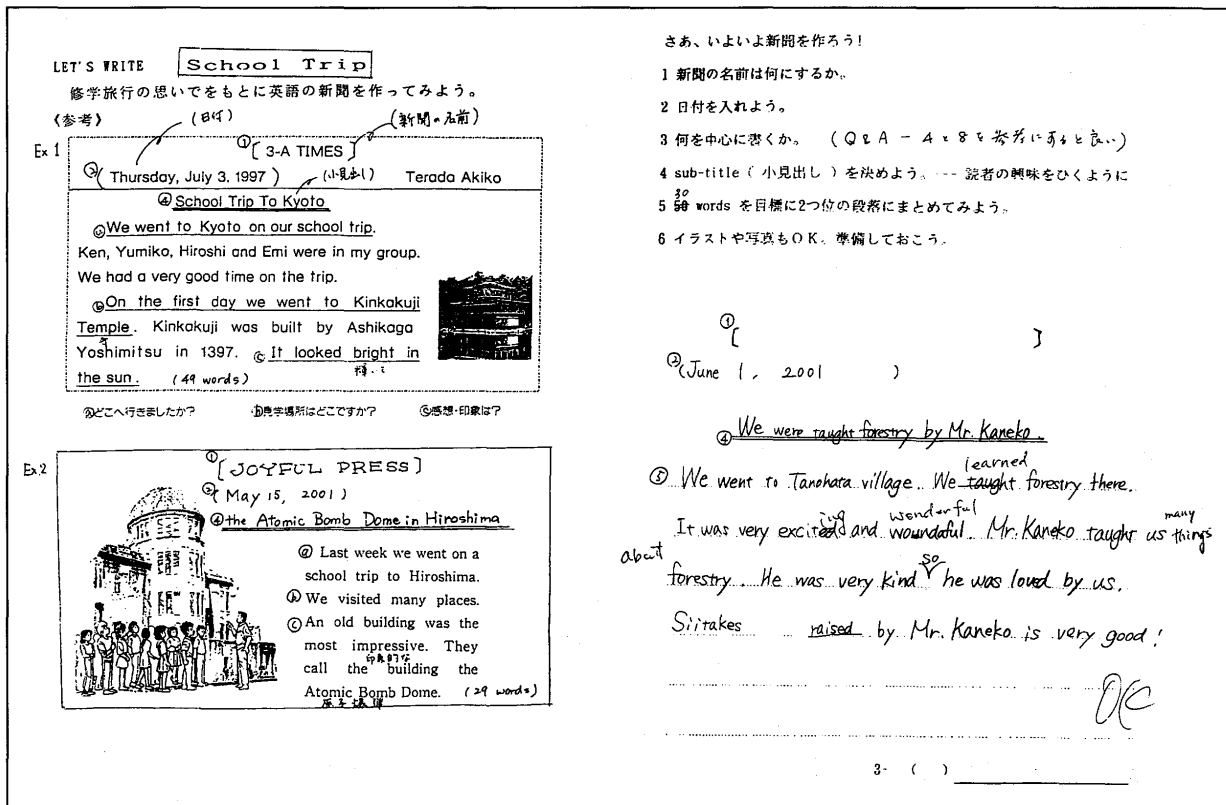 LET'S WRITE School Trip
修学旅行の思いでをもとに英語の新聞を作ってみよう。
〈参考〉 (日付) (新聞の名前)
Ex 1
① [ 3-A TIMES ]
② ( Thursday, July 3. 1997 ) (小見出し) Terada Akiko
④ School Trip To Kyoto
ⓐ We went to Kyoto on our school trip.
Ken, Yumiko, Hiroshi and Emi were in my group.
We had a very good time on the trip.
ⓑ On the first day we went to Kinkakuji
Temple. Kinkakuji was built by Ashikaga
Yoshimitsu in 1397. ⓒ It looked bright in
輝いて
the sun. (49 words)
ⓐどこへ行きましたか? ⓑ見学場所はどこですか? ⓒ感想・印象は?
Ex.2
① [ JOYFUL PRESS ]
② ( May 15, 2001 )
④ the Atomic Bomb Dome in Hiroshima
ⓐ Last week we went on a
school trip to Hiroshima.
ⓑ We visited many places.
ⓒ An old building was the
most impressive. They
印象的な
call the building the
Atomic Bomb Dome. (29 words)
原子爆弾
さあ、いよいよ新聞を作ろう!
1 新聞の名前は何にするか。
2 日付を入れよう。
3 何を中心に書くか。 (Q&A - 4と8を参考にすると良い)
4 sub-title ( 小見出し ) を決めよう。--- 読者の興味をひくように
30
5 50 words を目標に2つ位の段落にまとめてみよう。
6 イラストや写真もOK。準備しておこう。
① [ ]
② (June 1, 2001 )
④ We were taught forestry by Mr. Kaneko.
learned
⑤ We went to Tanohata village. We taught forestry there.
ing wonderful many
It was very excited and woundaful. Mr. Kaneko taught us things
about so
forestry. He was very kind he was loved by us.
Siitakes raised by Mr. Kaneko is very good!
OK
3- ( )